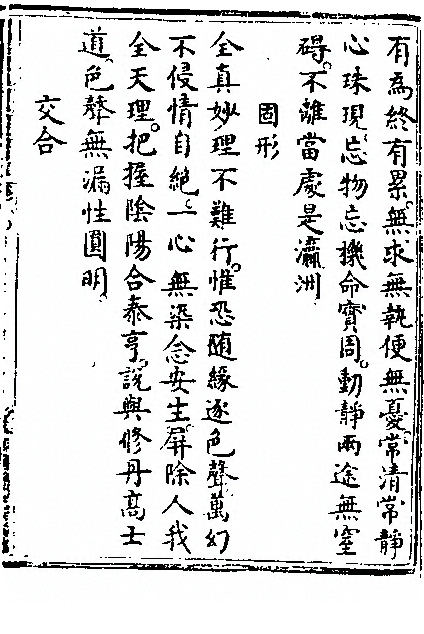 有為終有累。無求無執便無憂。常清常靜
心珠現。忘物忘機命寶周。動靜兩途無窒
碍。不離當處是瀛洲
固形
全真妙理不難行。惟恐随緣逐色聲。萬幻
不侵情自絶。一心無染念安生。屏除人我
全天理。把握陰陽合泰亨。說與修丹高士
道。色聲無漏性圓明。
交合